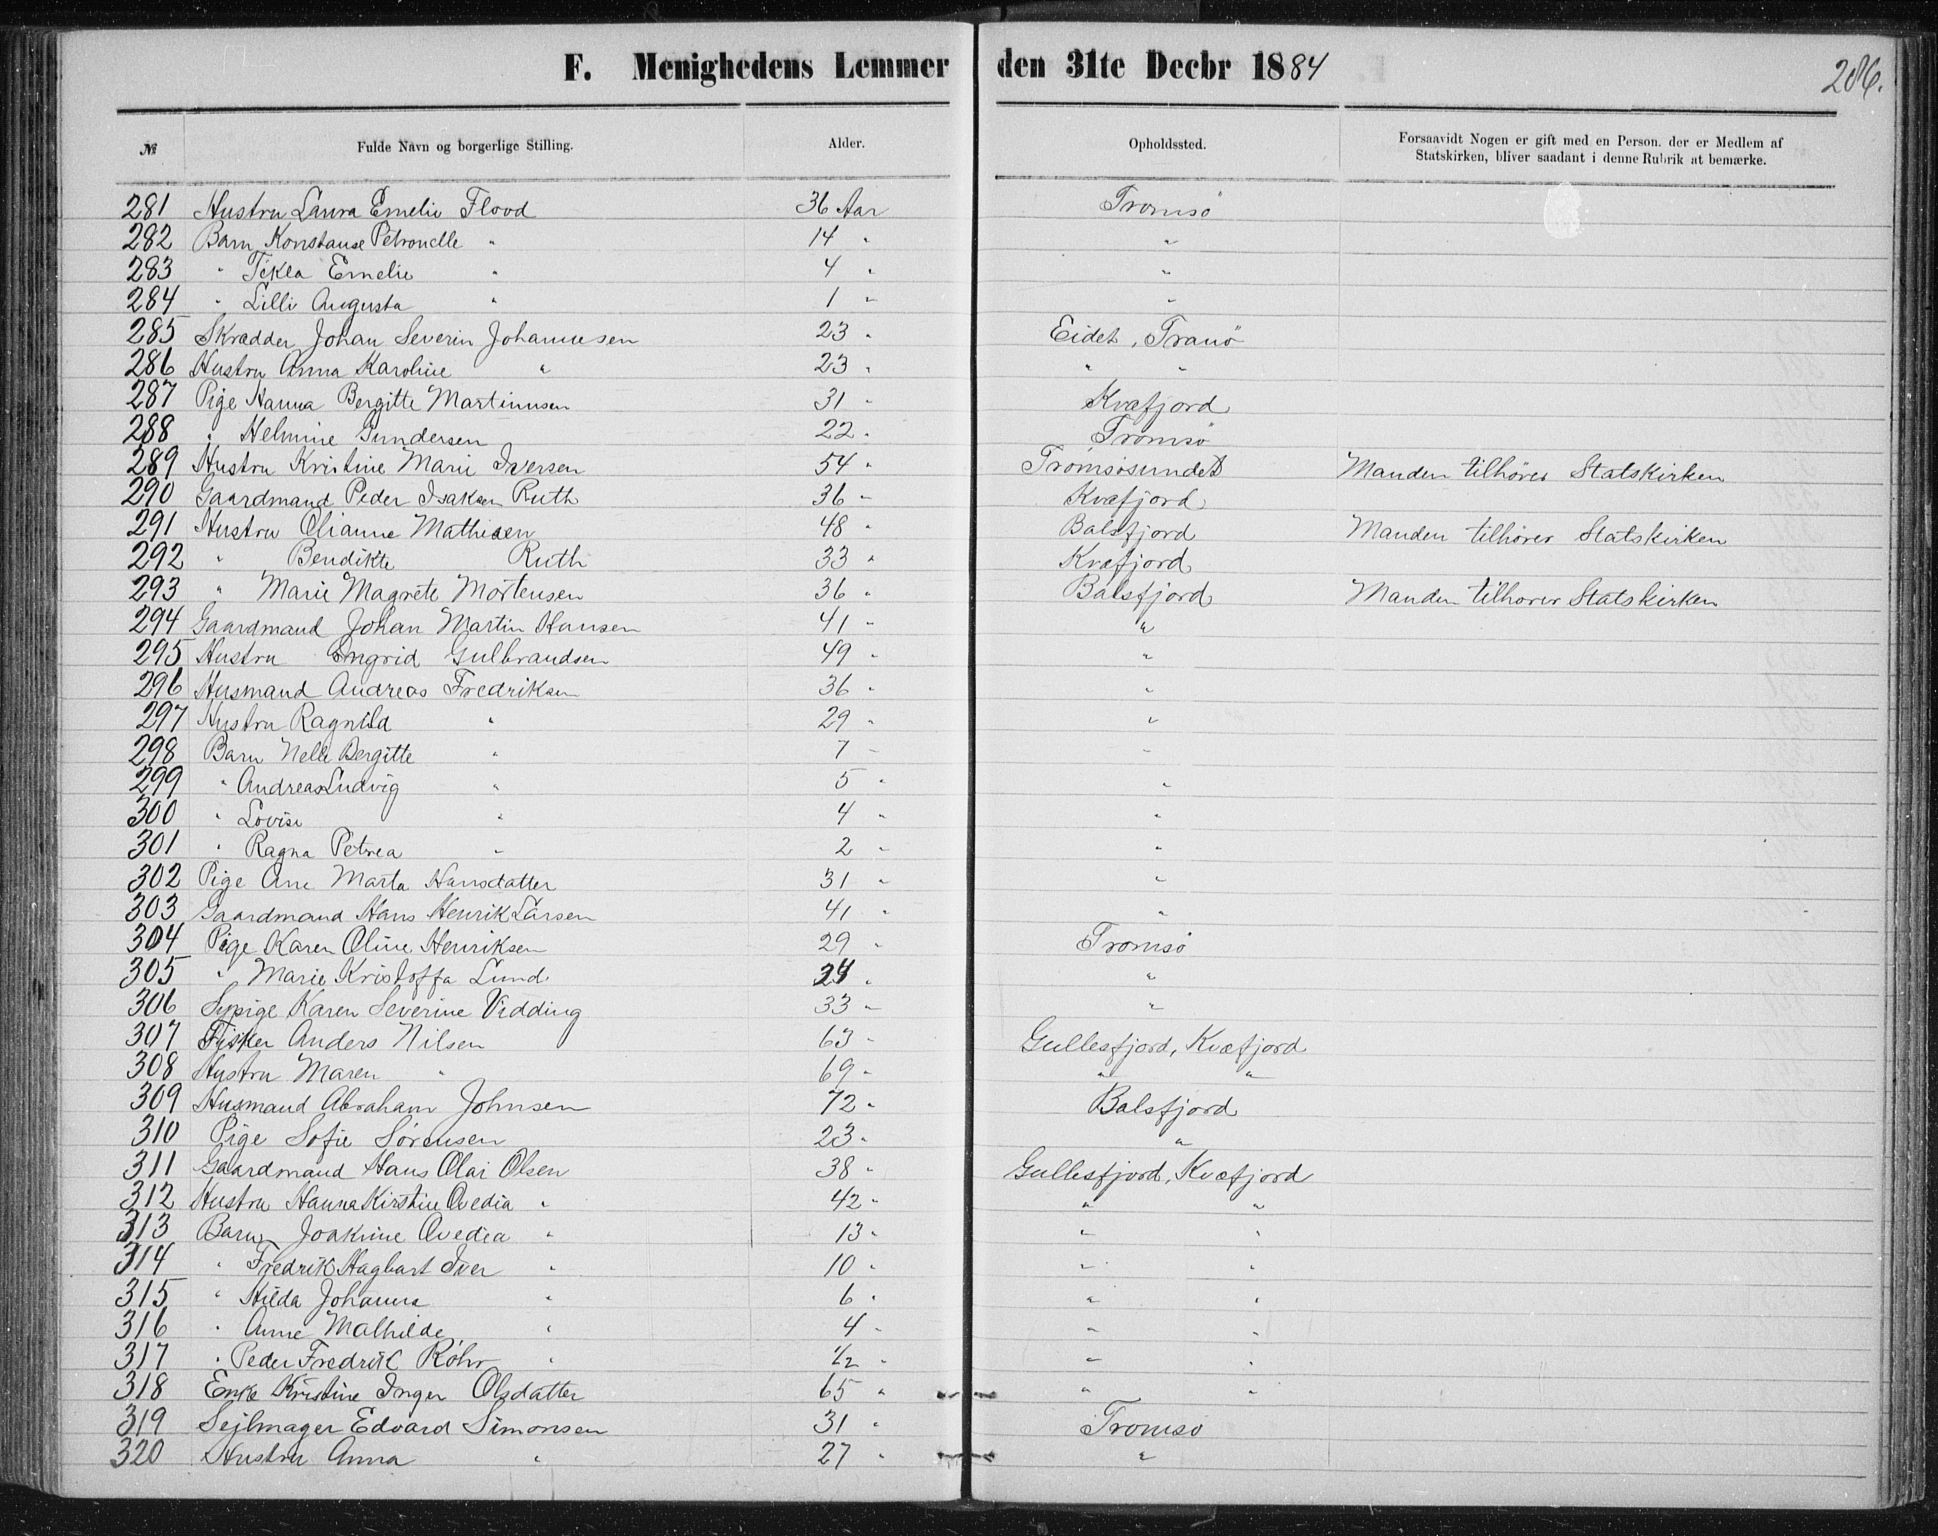 F. Menighedens Lemmer den 31te Decbr 1884 286.
№ Fulde Navn og borgerlige Stilling. Alder. Opholdssted. Forsaavidt Nogen er gift med en Person, der er Medlem af Statskirken, bliver saadant i denne Rubrik at bemærke.
281 Hustru Laura Emelie Flood 36 Aar Tromsö
282 Barn Konstanse Petronelle " 14 " "
283 " Tekla Emelie " 4 " "
284 " Lilli Augusta " 1 " "
285 Skrædder Johan Severin Johannesen 23 " Eidet, Tranö
286 Hustru Anna Karoline " 23 " " "
287 Pige Hanna Bergitte Martinusen 31 " Kvæfjord
288 " Helmine Gundersen 22 " Tromsö
289 Hustru Kristine Marie Iversen 54 " Tromsösundet Manden tilhører Statskirken
290 Gaardmand Peder Isaksen Ruth 36 " Kvæfjord
291 Hustru Olianne Mathisen 48 " Balsfjord Manden tilhører Statskirken
292 " Bendikte Ruth 33 " Kvæfjord
293 " Marie Magrete Mortensen 36 " Balsfjord Manden tilhører Statskirken
294 Gaardmand Johan Martin Hansen 41 " "
295 Hustru Ingrid Gulbrandsen 49 " "
296 Husmand Andreas Fredriksen 36 " "
297 Hustru Ragnild " 29 " "
298 Barn Nelle Bergitte " 7 " "
299 " Andreas Ludvig " 5 " "
300 " Lovise " 4 " "
301 " Ragna Petrea " 2 " "
302 Pige Ane Marta Hansdatter 31 " "
303 Gaardmand Hans Henrik Larsen 41 " "
304 Pige Karen Oline Henriksen 29 " Tromsö
305 " Marie Kristoffa Lund " "
306 Sypige Karen Severine Vidding 33 " "
307 Fisker Anders Nilsen 63 " Gullesfjord, Kvæfjord
308 Hustru Maren " 69 " " "
309 Husmand Abraham Johnsen 72 " Balsfjord
310 Pige Sofie Sørensen 23 " "
311 Gaardmand Hans Olai Olsen 38 " Gullesfjord, Kvæfjord
312 Hustru Hanna Kirstine Ovedia " 42 " " "
313 Barn Joakime Ovedia " 13 " " "
314 " Fredrik Hagbart Iver " 10 " " "
315 " Hilda Johanna " 6 " " "
316 " Anne Mathilde " 4 " " "
317 " Peder Fredrik Röhr " 1/2 " " "
318 Enke Kristine Inger Olsdatter 65 " " "
319 Sejlmager Edvard Simonsen 31 " Tromsö
320 Hustru Anna " 27 " "